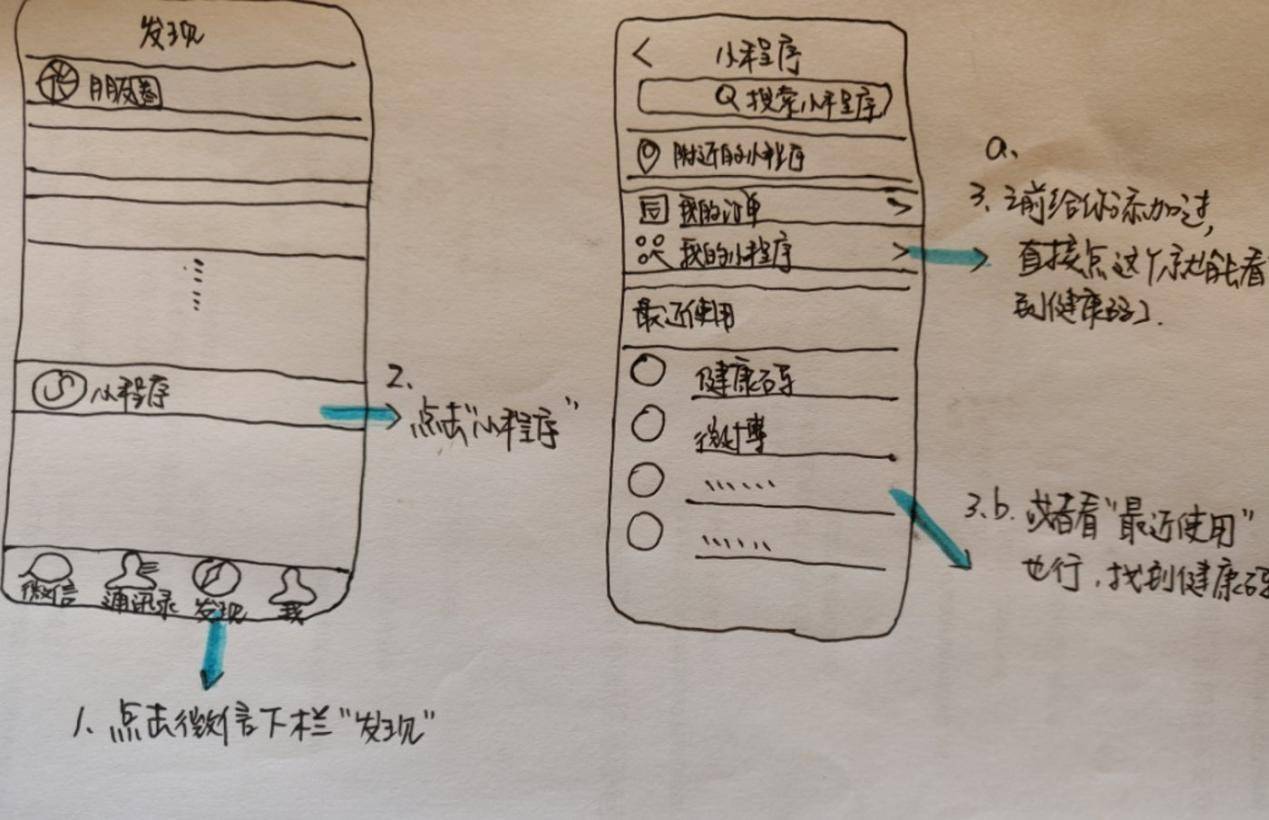 发现
朋友圈
小程序
微信
通讯录
发现
我
2.
点击“小程序”
1、点击微信下栏“发现”
小程序
搜索小程序
附近的小程序
我的订单
我的小程序
最近使用
健康码
微博
a、
3、之前给你添加过,
直接点这个就能看
到健康码了.
3.b.或者看“最近使用”
也行,找到健康码